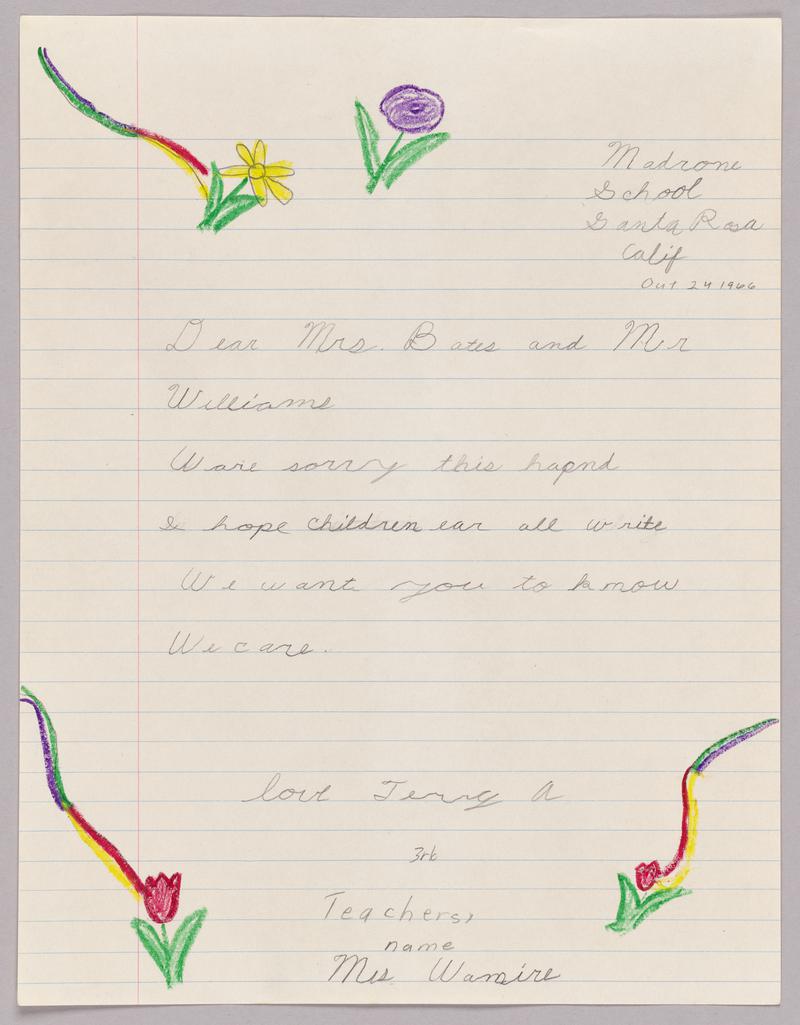 Madrone
School
Santa Rosa
Calif
Out 24 1966
Dear Mrs. Bates and Mr
Williams
W are sorry this hapnd
I hope children ear all write
We want you to know
We care.
love Terry A
3rb
Teachers,
name
Mrs Wamire